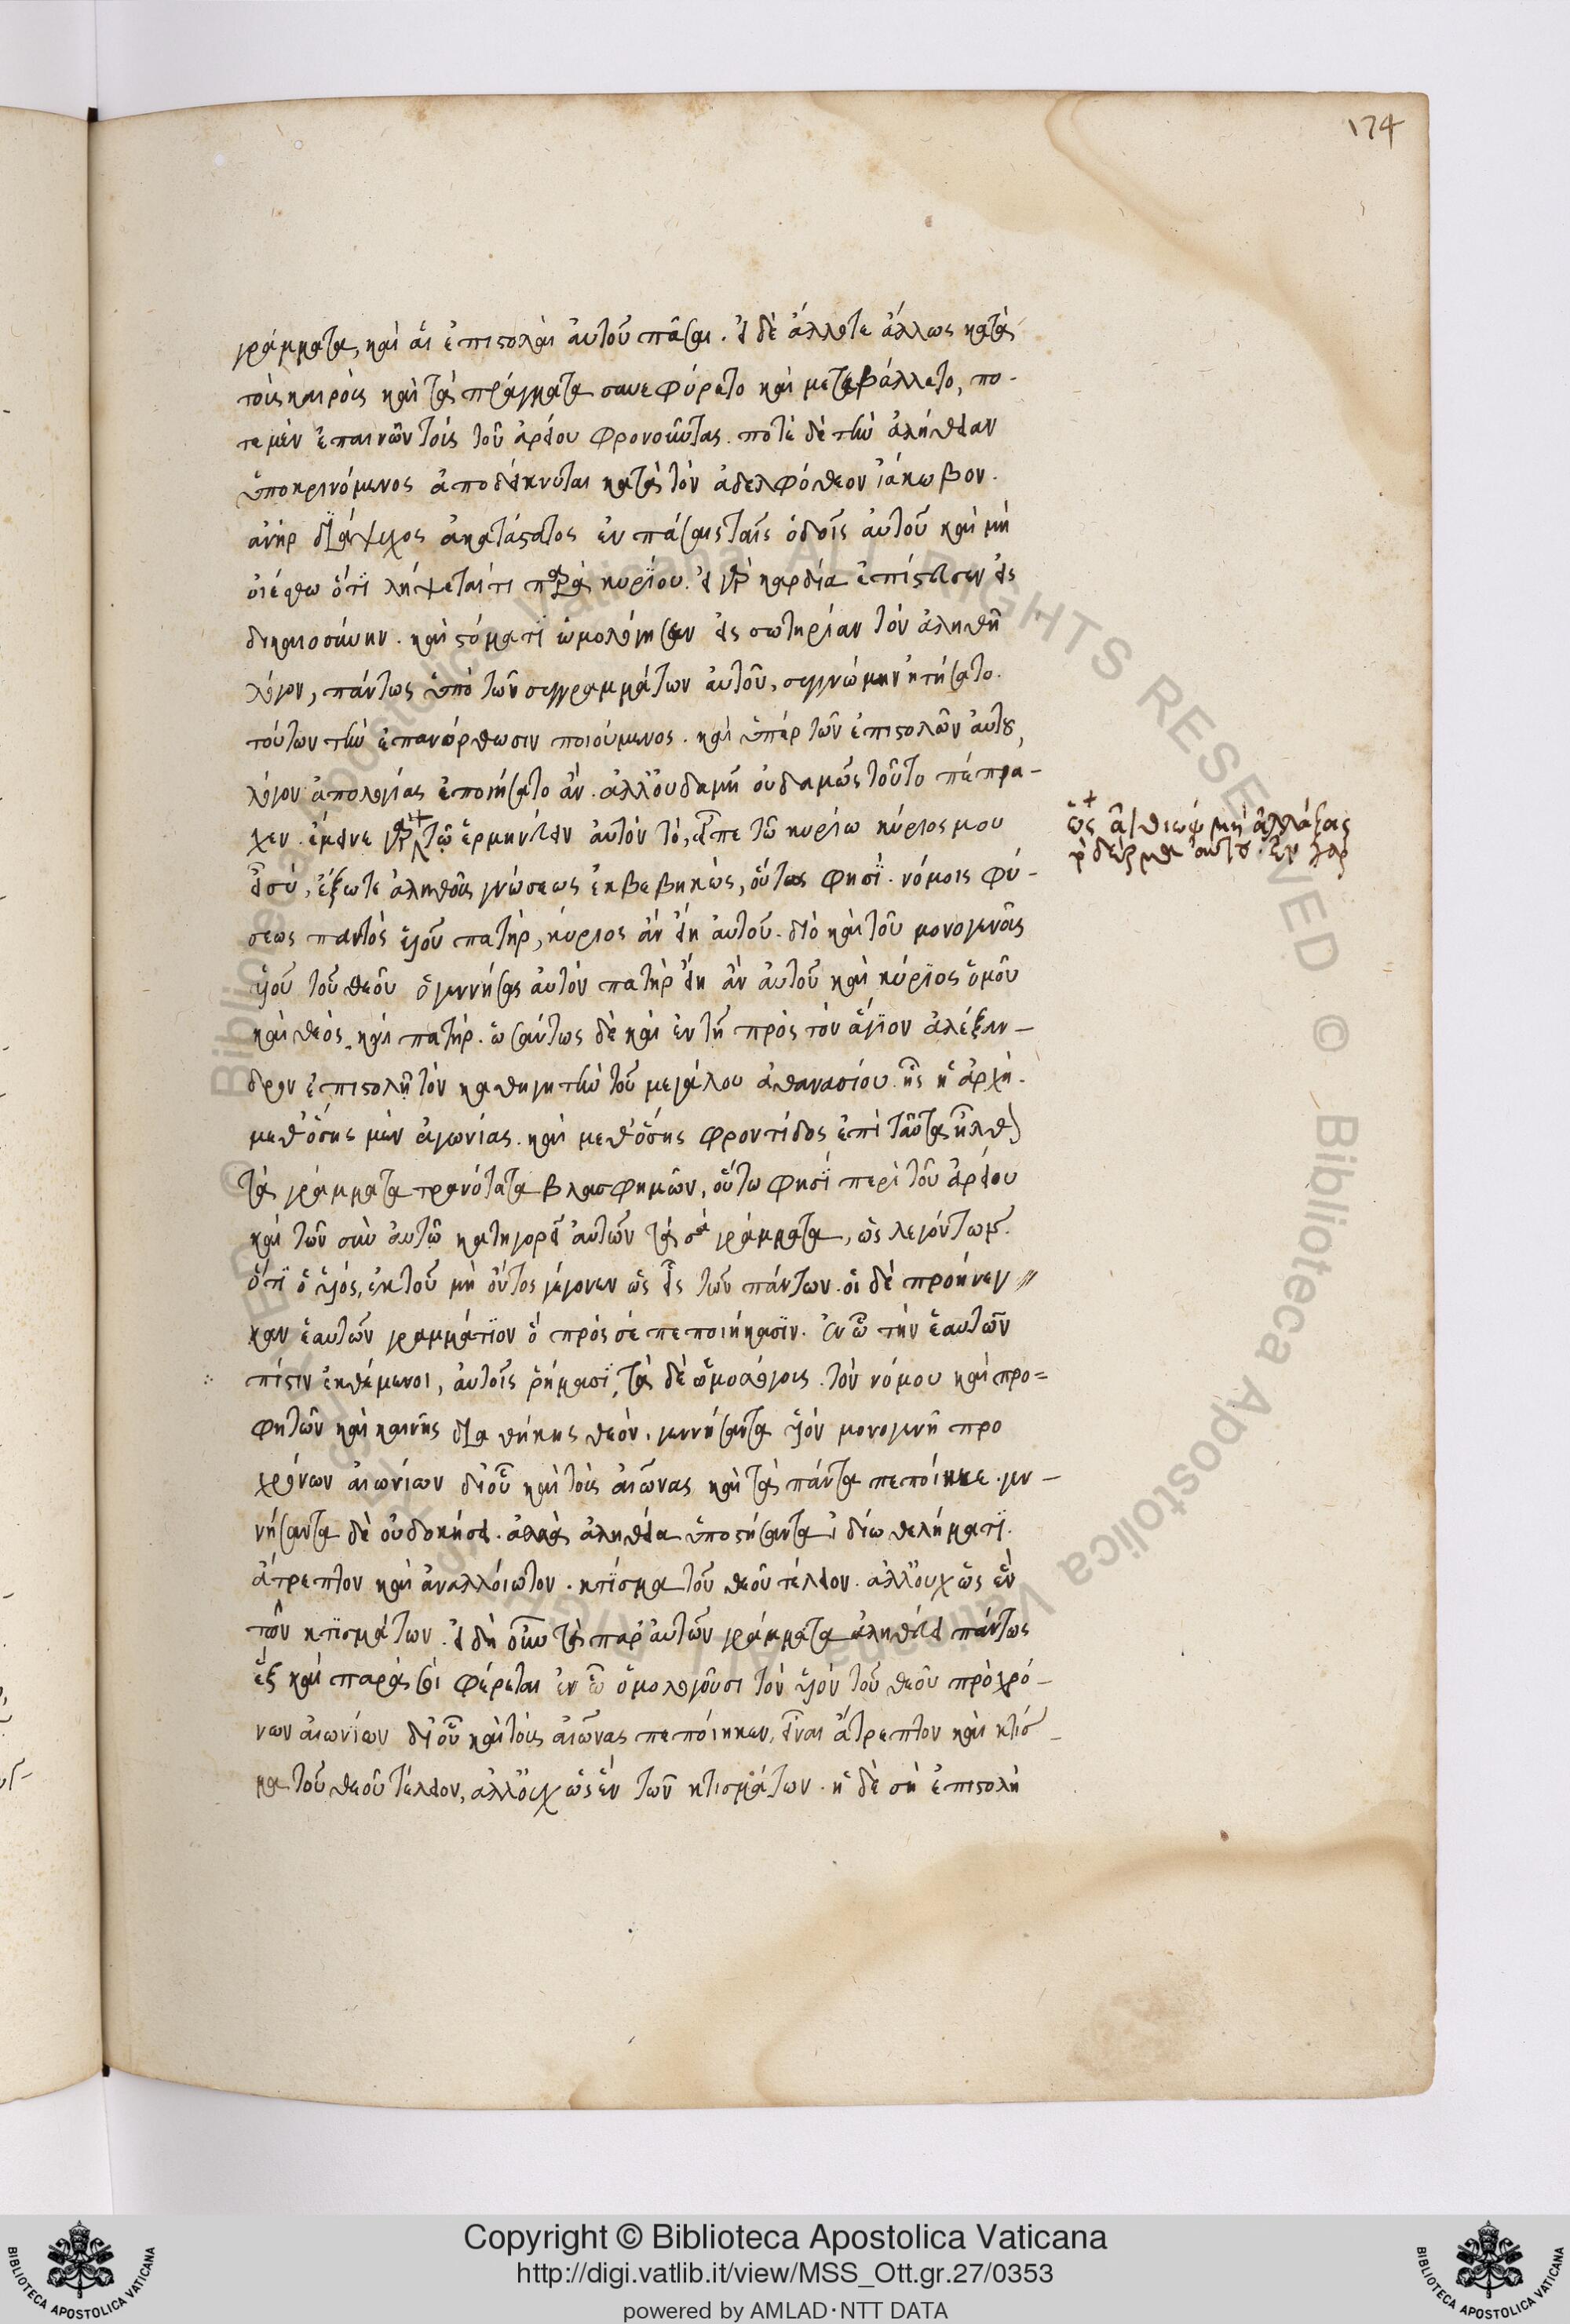 174
γράμματα, καὶ αἱ ἐπιστολαὶ αὐτοῦ πᾶσαι. εἰ δὲ ἄλλοτε ἄλλως κατὰ
τοὺς καιροὺς καὶ τὰ πράγματα συνεφύρετο καὶ μετεβάλλετο, πο-
τε μὲν ἐπαινῶν τοὺς τοῦ ἀρείου φρονοῦντας. ποτὲ δὲ τὴν ἀλήθειαν
ὑποκρινόμενος ἀποδείκνυται κατὰ τὸν ἀδελφόθεον ἰάκωβον.
ἀνὴρ δίψυχος ἀκατάστατος ἐν πάσαις ταῖς ὁδοῖς αὐτοῦ καὶ μὴ
οἰέσθω ὅτϊ λήψεταί τι παρὰ κυρΐου. εἰ γὰρ καρδία ἐπίστευσεν εἰς
δικαιοσύνην. καὶ στόματϊ ὡμολόγησεν εἰς σωτηρίαν τὸν ἀληθῆ
λόγον, πάντως ὑπὸ τῶν συγγραμμάτων αὐτοῦ, συγγνώμην ἠτήσατο.
τούτων τὴν ἐπανόρθωσιν ποιούμενος. καὶ ὑπὲρ τῶν ἐπιστολῶν αὐτοῦ,
λόγον ἀπολογίας ἐποιήσατο ἄν. ἀλλ' οὐδαμῆ οὐδαμῶς τοῦτο πέπρα-
χεν. ἔμεινε γὰρ τῶ ἑρμηνεύειν αὐτὸν τὸ, εἶπε τῶ κυρίω κύριος μου
ὡς αἰθιωψ μὴ ἀλλάξας
δέρμα αὐτοῦ ἐν γὰρ
ἔξωτε ἀληθοῦς γνώσεως ἐκβεβηκὼς, οὕτως φησϊ. νόμοις φύ-
σεως παντὸς υἱοῦ πατὴρ, κύριος ἂν εἴη αὐτοῦ. διὸ καὶ τοῦ μονογενοῦς
υἱοῦ τοῦ θεοῦ ὁ γεννήσας αὐτὸν πατὴρ εἴη ἂν αὐτοῦ καὶ κύρϊος ὁμοῦ
καὶ θεὸς καὶ πατήρ. ὡσαύτως δὲ καὶ ἐν τῇ πρὸς τὸν ἅγϊον ἀλέξαν-
δρον ἐπιστολῆ τὸν καθηγητὴν τοῦ μεγάλου ἀθανασίου. ἧς ἡ ἀρχὴ.
μεθ' ὅσης μὲν ἀγωνίας. καὶ μεθ' ὅσης φροντίδος ἐπὶ ταῦτα ἦλθ
τὰ γράμματα τρανότατα βλασφημῶν, οὕτω φησϊ περὶ τοῦ ἀρείου
καὶ τῶν σὺν αὐτῶ κατηγορεῖ αὐτῶν τὰ σὰ γράμματα, ὡς λεγόντων.
ὅτϊ ὁ υἱός, ἐκ τοῦ μὴ ὄντος γέγονεν ὡς εἷς τῶν πάντων. οἱ δὲ προήνεγ-
καν ἑαυτῶν γραμμάτϊον ὃ πρός σέ πεποιήκασϊν. ἐν ὧ τὴν ἑαυτῶν
πίστιν ἐκθέμενοι, αὐτοῖς ῥήμασϊ, τὰ δὲ ὡμολόγοις. τὸν νόμου καὶ προ-
φητῶν καὶ καινῆς διαθήκης θεὸν. γεννήσαντα υἱὸν μονογενῆ προ
χρόνων αἰωνίων δι' οὗ καὶ τοὺς αἰῶνας καὶ τὰ πάντα πεποίηκε. γεν-
νήσαντα δὲ οὐ δοκήσει. ἀλλὰ ἀληθεία ὑποστήσαντα ἰδίω θελήματϊ.
ἄτρεπτον καὶ ἀναλλοίωτον. κτϊσμα τοῦ θεοῦ τέλειον. ἀλλ' οὐχ ὡς ἓν
τῶν κτϊσμάτων. εἰ δὴ οὖν τὰ παρ' αὐτῶν γράμματα ἀληθεύει πάντως
ἐξ καὶ παρὰ σοὶ φέρεται ἐν ὧ ὁμολογοῦσι τὸν υἱὸν τοῦ θεοῦ πρὸ χρό-
νων αἰωνίων δι' οὗ καὶ τοὺς αἰῶνας πεποίηκεν, εἶναι ἄτρεπτον καὶ κτίσ-
μα τοῦ θεοῦ τέλειον, ἀλλ' οὐχ ὡς ἓν τῶν κτισμάτων. ἡ δὲ σὴ ἐπιστολὴ
© Biblioteca Apostolica Vaticana ALL RIGHTS RESERVED © Biblioteca Apostolica Vaticana ALL RIGHTS RESERVED
Copyright © Biblioteca Apostolica Vaticana
http://digi.vatlib.it/view/MSS_Ott.gr.27/0353
powered by AMLAD·NTT DATA
BIBLIOTECA APOSTOLICA VATICANA
BIBLIOTECA APOSTOLICA VATICANA